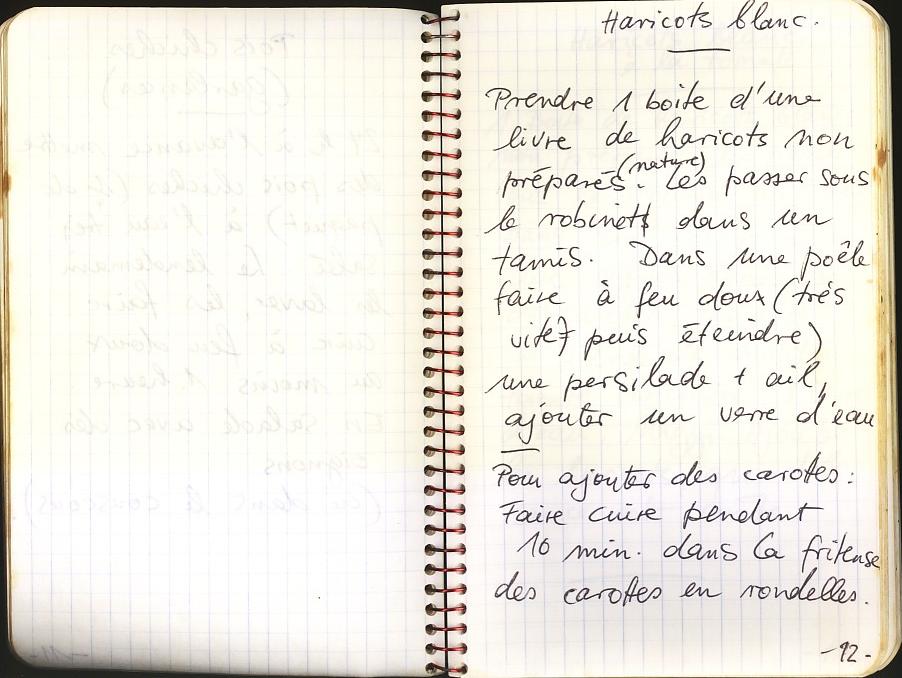 Haricots blanc.
Prendre 1 boite d'une
livre de haricots non
préparés (nature). Les passer sous
le robinet dans un
tamis. Dans une poêle
faire à feu doux (très
vite puis éteindre)
une persilade + ail,
ajouter un verre d'eau
Pour ajouter des carotes :
Faire cuire pendant
10 min. dans la friteuse
des carottes en rondelles.
-12-